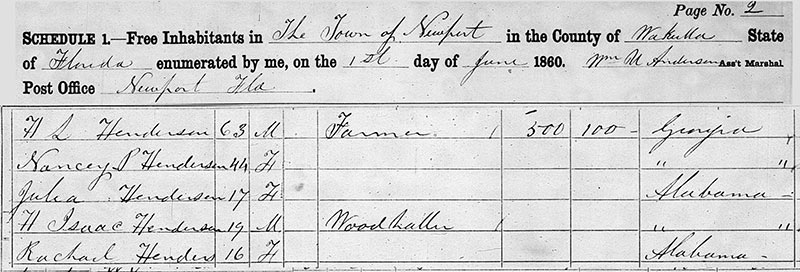 Page No. 2
SCHEDULE 1.—Free Inhabitants in The Town of Newport in the County of Wakulla State
of Florida enumerated by me, on the 1st day of June 1860. Wm U Anderson Ass't Marshal
Post Office Newport Fla.
H L Henderson 63 M Farmer / 500 100 - Georgia
Nancey P Henderson 44 F " "
Julia Henderson 17 F Alabama -
H Isaac Henderson 19 M Wood / " "
Rachael Henders 16 F Alabama -